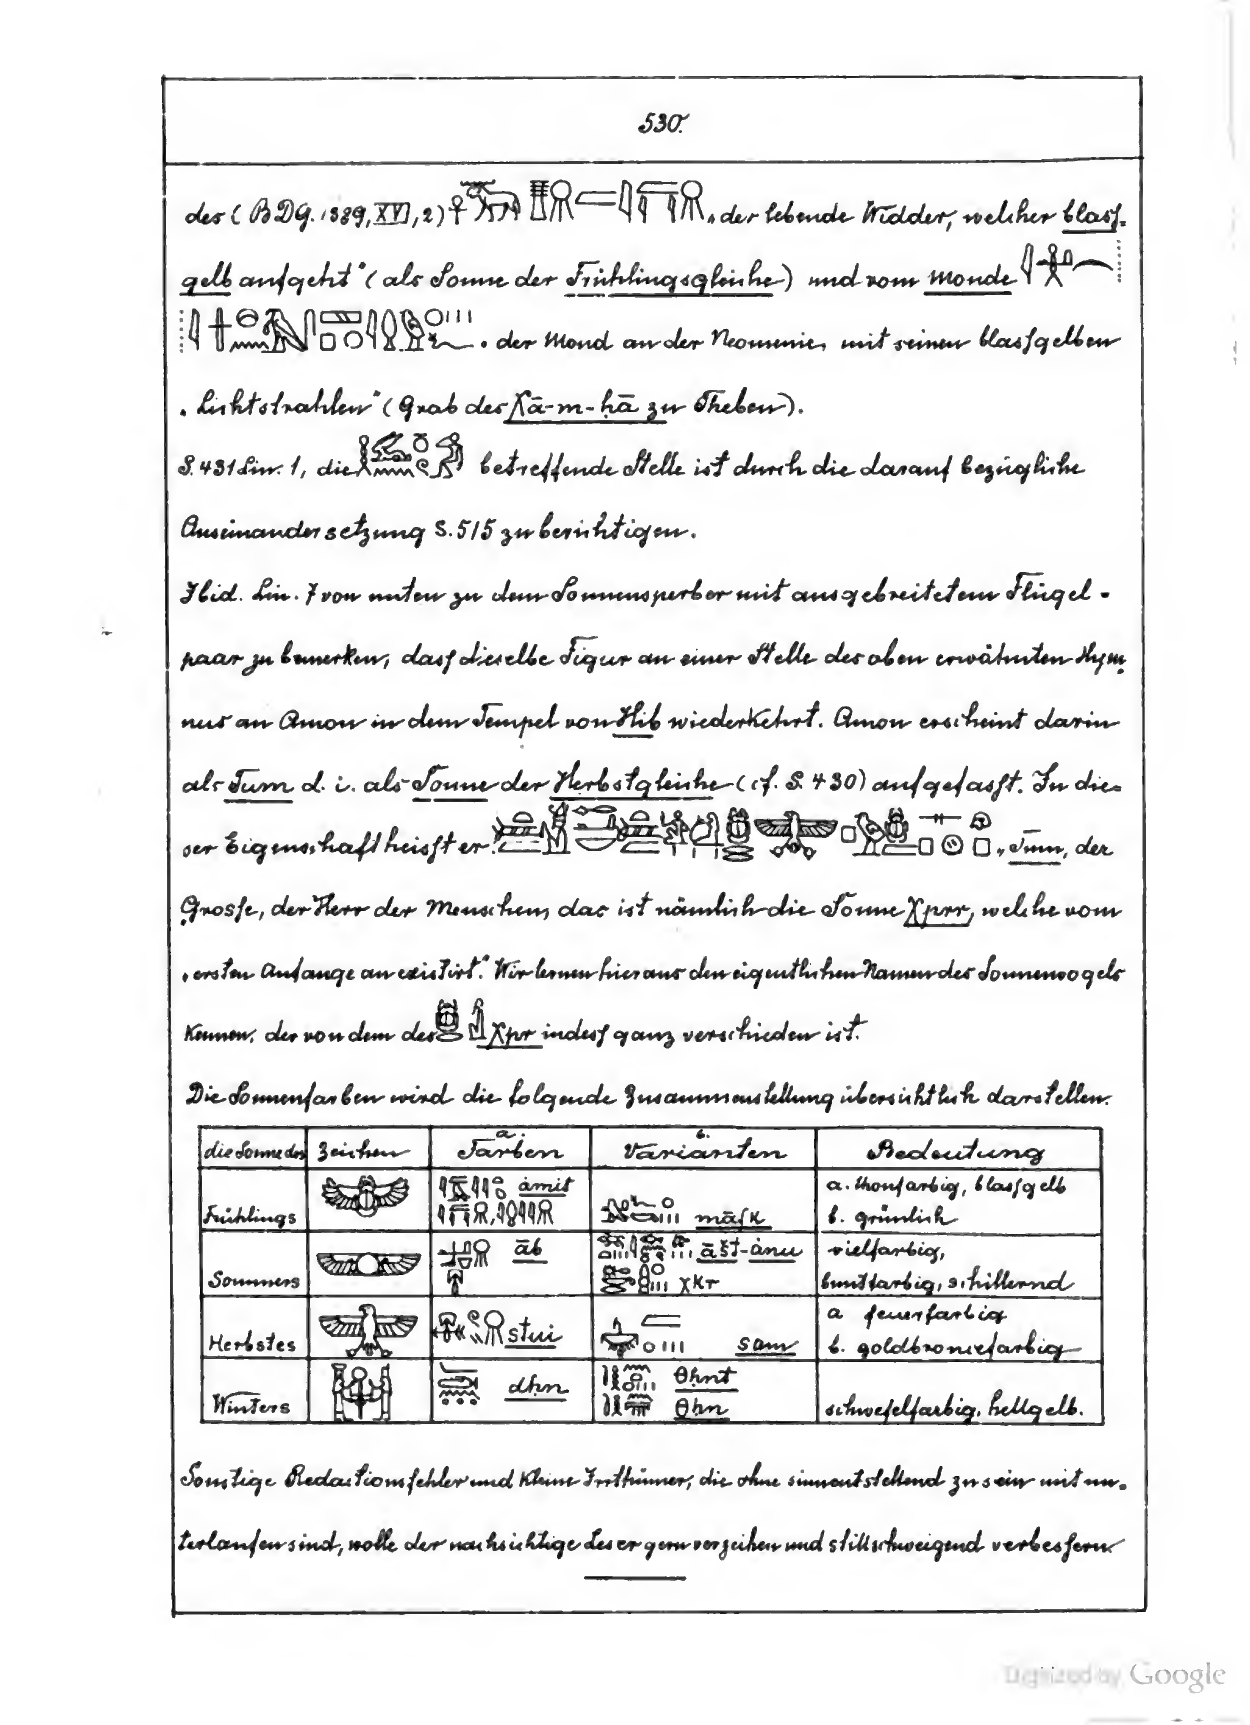 530.
des (BDG. 1389, XVI, 2) „der lebende Widder, welcher blasſ-
gelb aufgeht" (als Sonne der Frühlingsgleiche) und vom Monde
„der Mond an der Neomenie, mit seinen blasſgelben
„Lichtstrahlen" (Grab des Xā-m-ḥā zu Theben).
S. 431 Lin. 1, die betreffende Stelle ist durch die darauf bezügliche
Auseinandersetzung S. 515 zu berichtigen.
Ibid. Lin. 7 von unten zu dem Sonnensperber mit ausgebreitetem Flügel-
paar zu bemerken, dasſ dieselbe Figur an einer Stelle des oben erwähnten Hym-
nus an Amon in dem Tempel von Hib wiederkehrt. Amon erscheint darin
als Tum d. i. als Sonne der Herbstgleiche (cf. S. 430) aufgefasſt. In die-
ser Eigenschaft heisſt er: „Tum, der
Grosſe, der Herr der Menschen, das ist nämlich die Sonne Xprr, welche vom
„ersten Anfange an existirt." Wir lernen hieraus den eigentlichen Namen des Sonnenvogels
kennen, der von dem des Xpr indesſ ganz verschieden ist.
Die Sonnenfarben wird die folgende Zusammenstellung übersichtlich darstellen:
die Sonne des Zeichen a. Farben b. Varianten Bedeutung
Frühlings ámit māfk a. thonfarbig, blasſgelb
b. grünlich
Sommers āb āšt-ánu vielfarbig,
χkr buntfarbig, schillernd
Herbstes stui sam a feuerfarbig
b. goldbroncefarbig
Winters dhn θhnt
θhn schwefelfarbig, hellgelb.
Sonstige Redactionsfehler und kleine Irrthümer, die ohne sinnentstellend zu sein mit un-
terlaufen sind, wolle der nachsichtige Leser gern verzeihen und stillschweigend verbesſern.
Digitized by Google